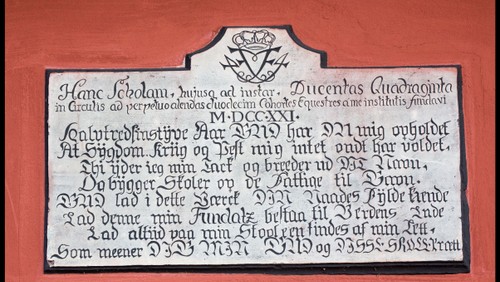 Hanc Scholam, hujusq ad instar, Ducentas Quadraginta
in Circulis ad perpetuo alendas duodecim Cohortes Equestres a me institutis fundavi
M·DCC·XXI.
Halvtredsinstyve Aar GUD har DU mig opholdet
At Sÿgdom. Kriig og Pest mig intet ondt har voldet.
Thi ÿder ieg min Tack og breeder ud DIT Navn,
Og bÿgger Skoler op de Fattige til Gavn.
GUD lad i dette Værck DIN Naades Fÿlde kiende
Lad denne min Fundatz bestaa til Verdens Ende
Lad altiid paa min Stoel een findes af min Æt.
Som meener DIG MIN GUD og DISSE SKOLER ræt